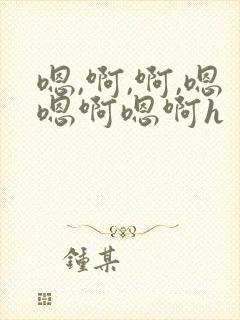 嗯,啊,啊,嗯
嗯啊嗯啊h
鍾某